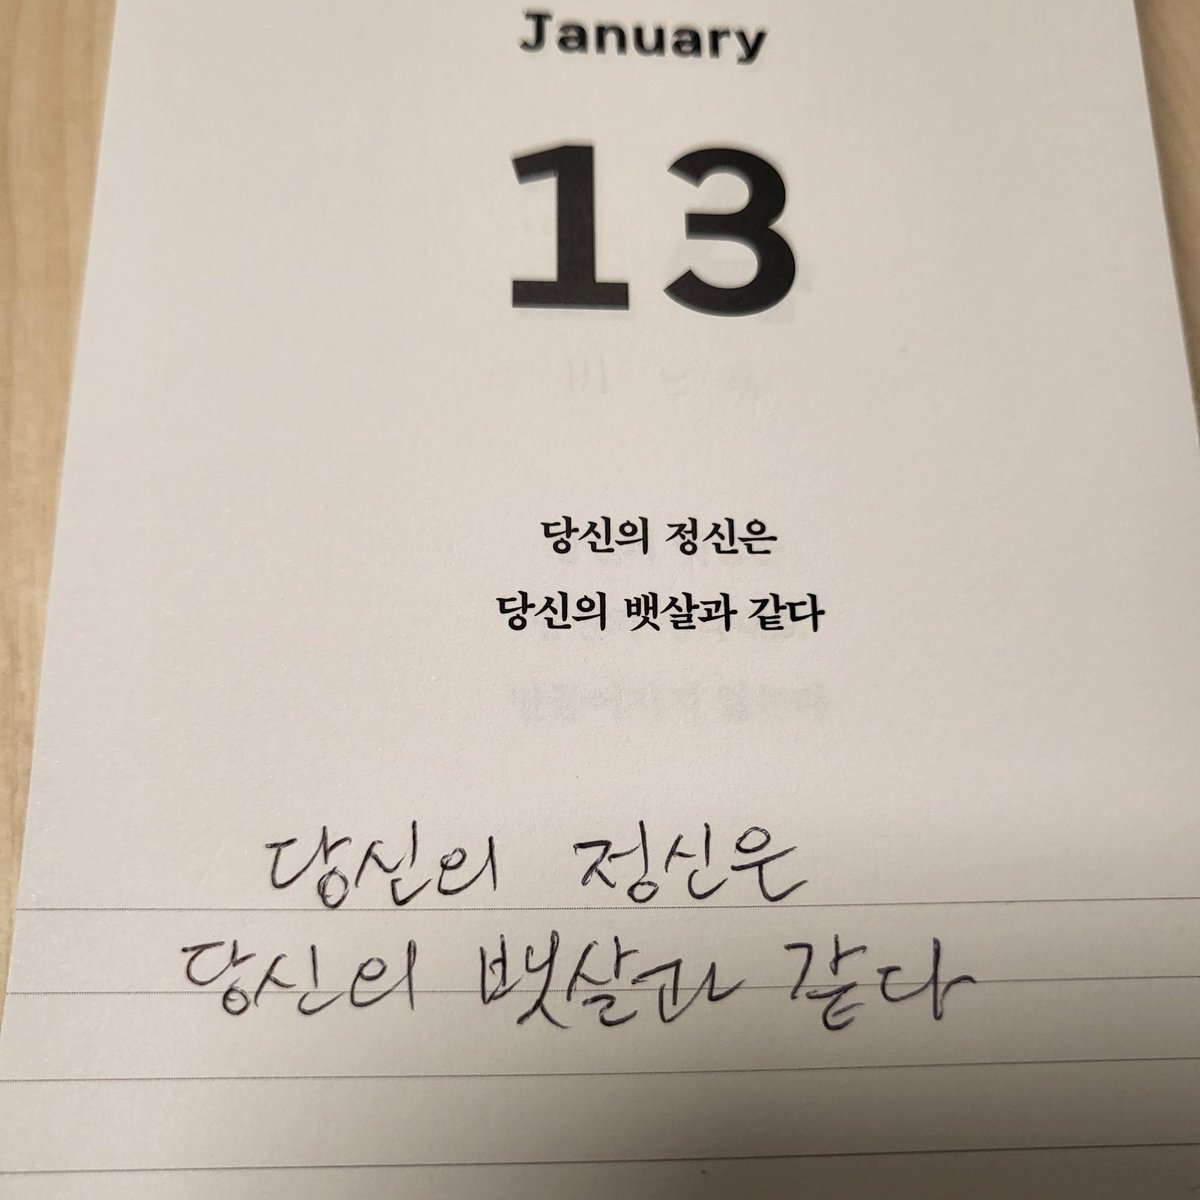 January
13
당신의 정신은
당신의 뱃살과 같다
당신의 정신은
당신의 뱃살과 같다